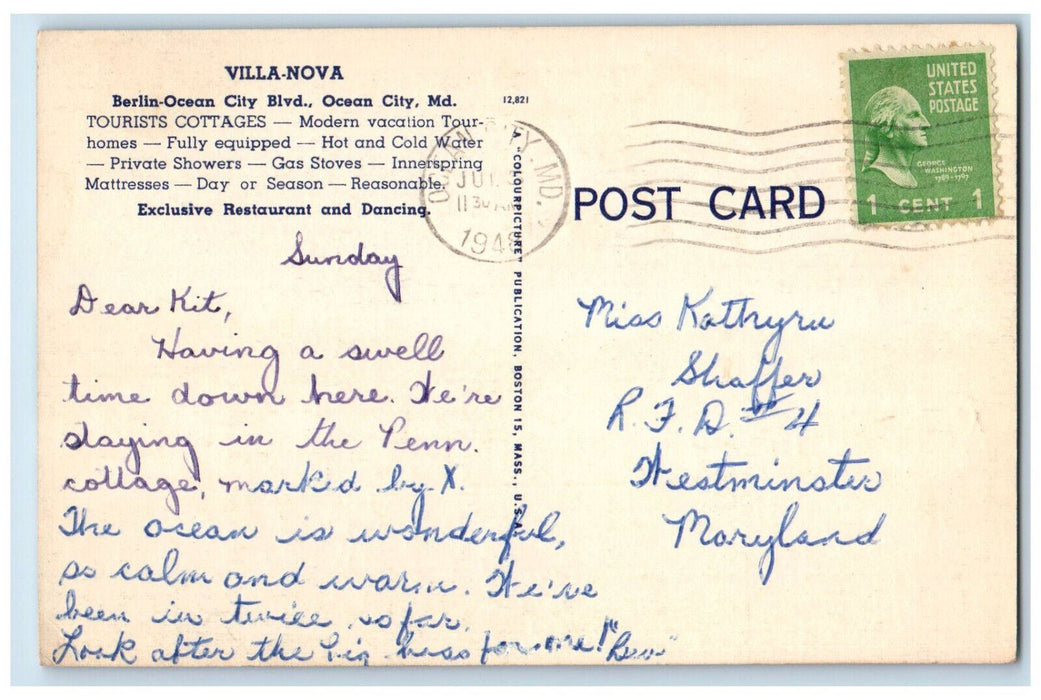 VILLA-NOVA
Berlin-Ocean City Blvd., Ocean City, Md.
TOURISTS COTTAGES — Modern vacation Tour-
homes — Fully equipped — Hot and Cold Water
— Private Showers — Gas Stoves — Innerspring
Mattresses — Day or Season — Reasonable.
Exclusive Restaurant and Dancing.
Sunday
Dear Kit,
Having a swell
time down here. We're
staying in the Penn.
cottage, mark'd by X.
The ocean is wonderful,
so calm and warm. We've
been in twice so far.
Look after the big boss for me! "Bev"
12,821
A "COLOURPICTURE" PUBLICATION, BOSTON 15, MASS., U.S.A.
OCEAN CITY, MD.
JUL
11 30 AM
194
POST CARD
UNITED
STATES
POSTAGE
GEORGE
WASHINGTON
1789-1797
1 CENT 1
Miss Kathryn
Shaffer
R.F.D. #4
Westminster
Maryland